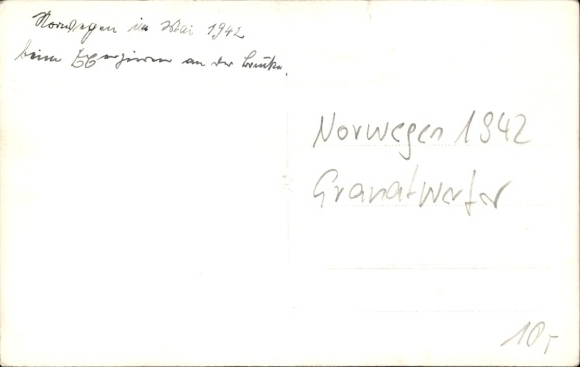 Norwegen im Mai 1942
beim Exerzieren an der
Norwegen 1942
Granatwerfer
10,-